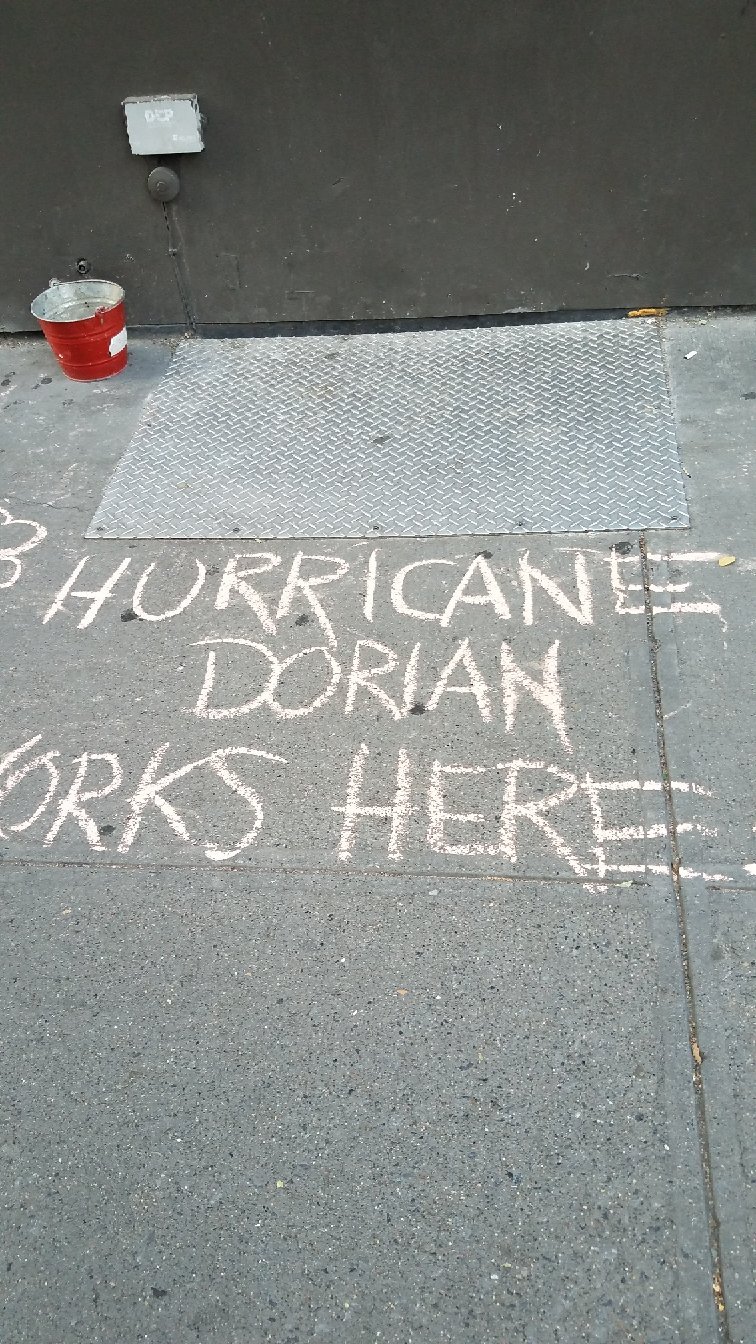 DEP
HURRICANE
DORIAN
WORKS HERE